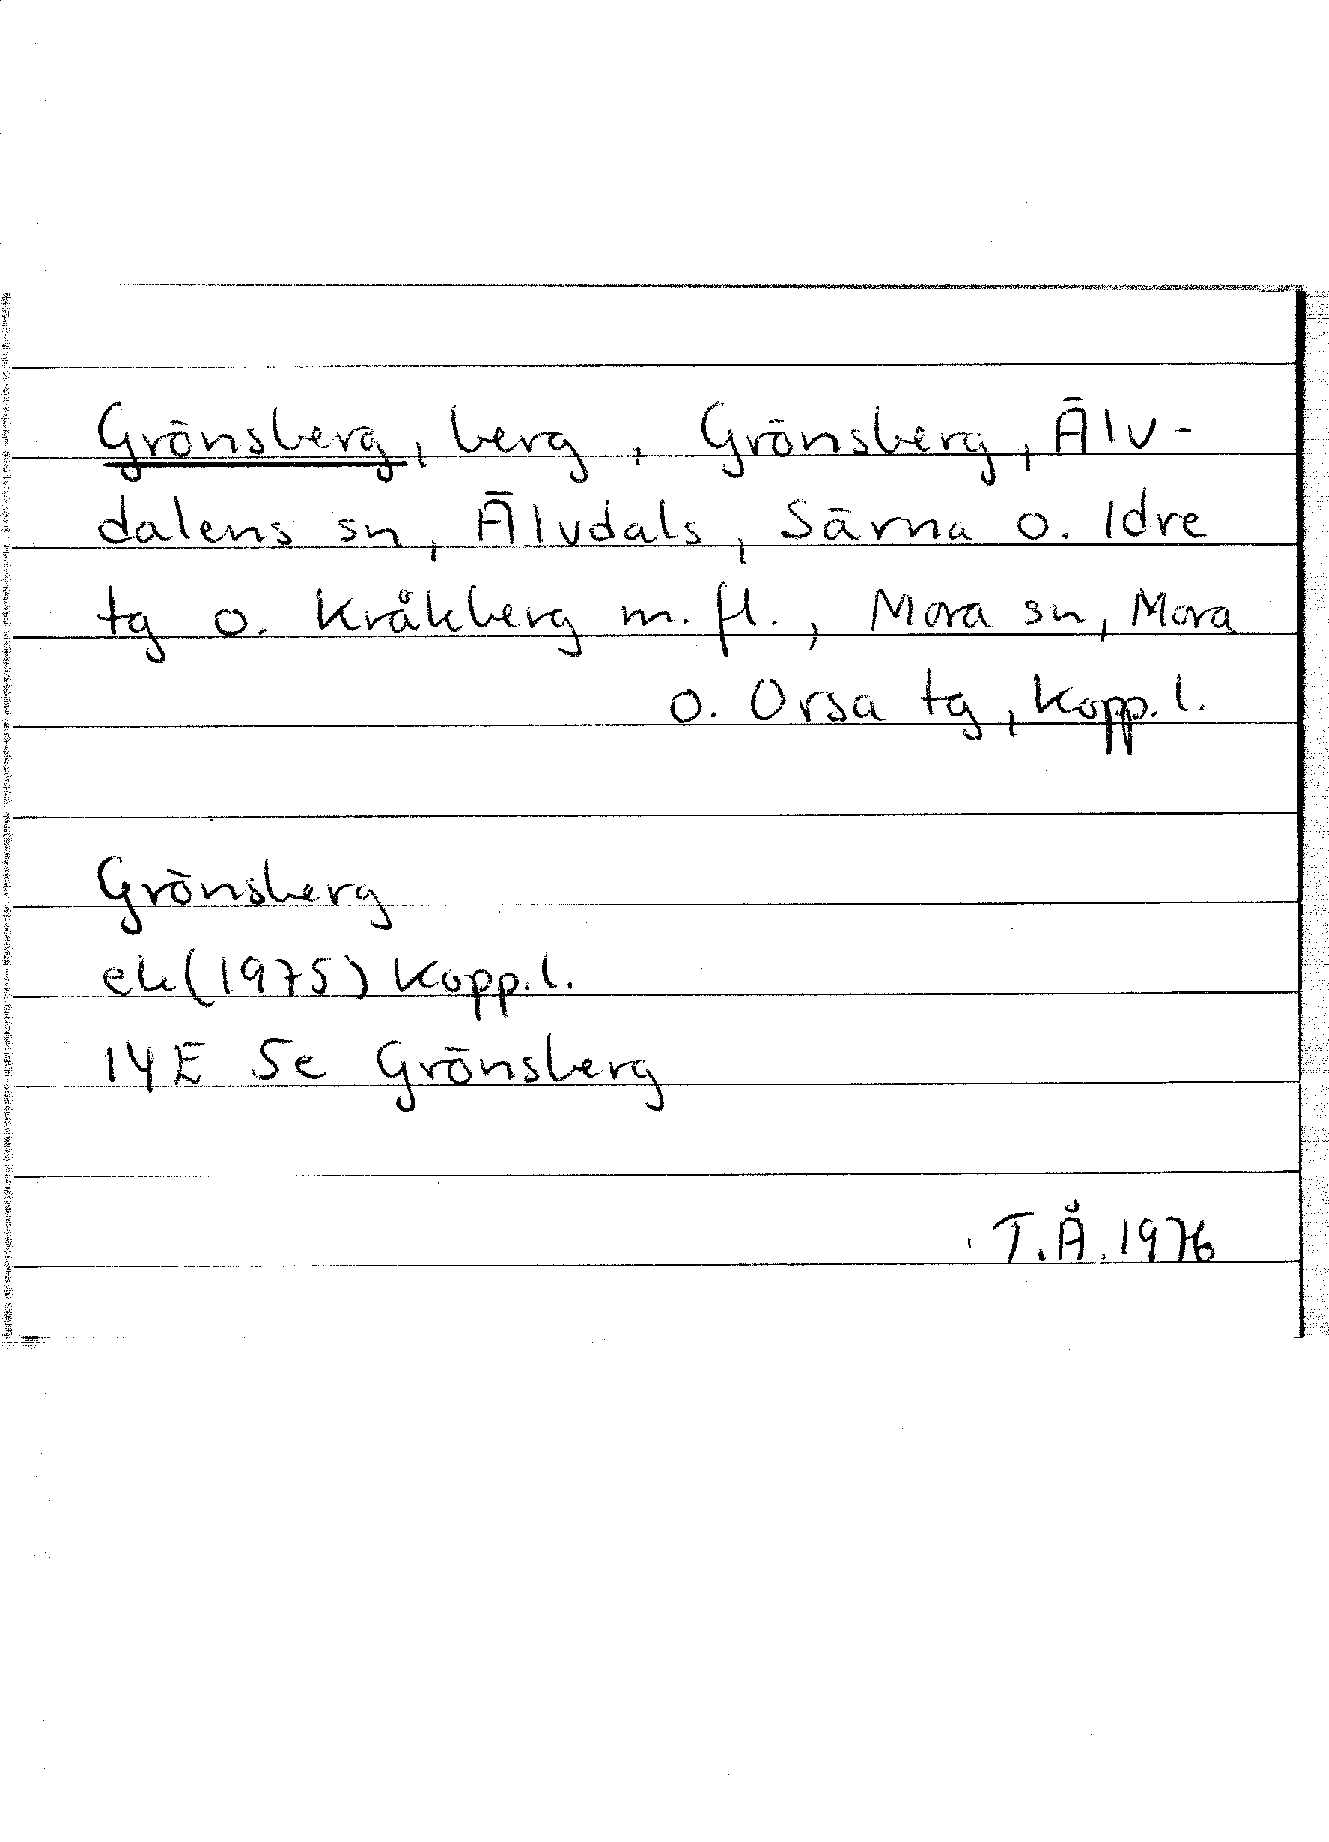 Grönsberg, berg, Grönsberg, Älv-
dalens sn, Älvdals, Särna o. Idre
tg o. Kråkberg m. fl., Mora sn, Mora
o. Orsa tg, Kopp. l.
Grönsberg
ek (1975) Kopp. l.
14E 5e Grönsberg
T.Å. 1976